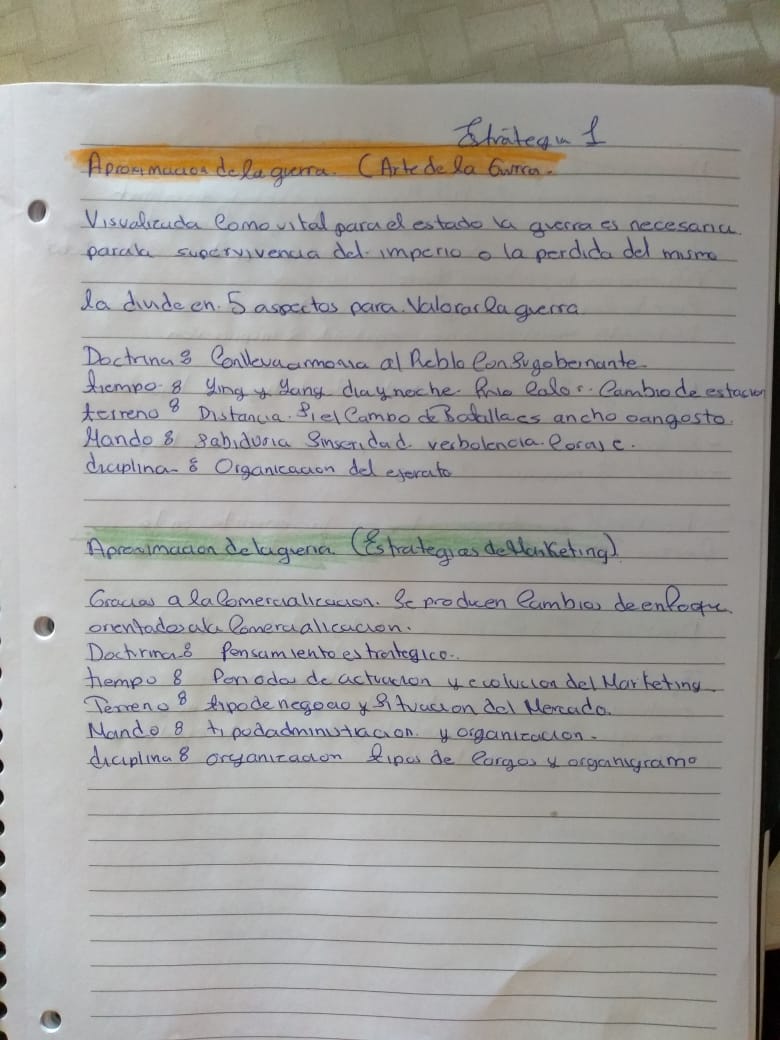 Estrategia 1
Aproximacion de la guerra. (Arte de la Guerra.
Visualizada Como vital para el estado la guerra es necesaria
para la supervivencia del imperio o la perdida del mismo
la divide en 5 aspectos para Valorar la guerra
Doctrina: Conlleva armonia al Pueblo Con Su gobernante
tiempo: Ying y Yang dia y noche. frio Calor. Cambio de estacion
terreno: Distancia. Si el Campo de Batalla es ancho o angosto.
Mando: Sabiduria Sinseridad verbolencia Coraje.
diciplina: Organicacion del ejercito
Aproximacion de la guerra (Estrategias de Marketing)
Gracias a la Comercialicacion. Se producen Cambios de enfoque
orientados a la Comercialicacion.
Doctirina: Pensamiento estrategico.
tiempo: Periodos de actuacion y evolucion del Marketing
Terreno: tipo de negocio y Situacion del Mercado.
Mando: tipo d administracion y organizacion.
diciplina: organizacion tipos de Cargos y organigrama